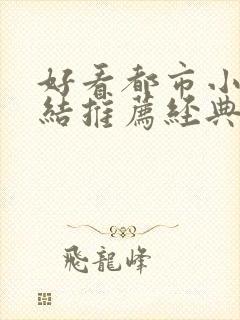 好看都市小
結推薦經典
飛龍峰